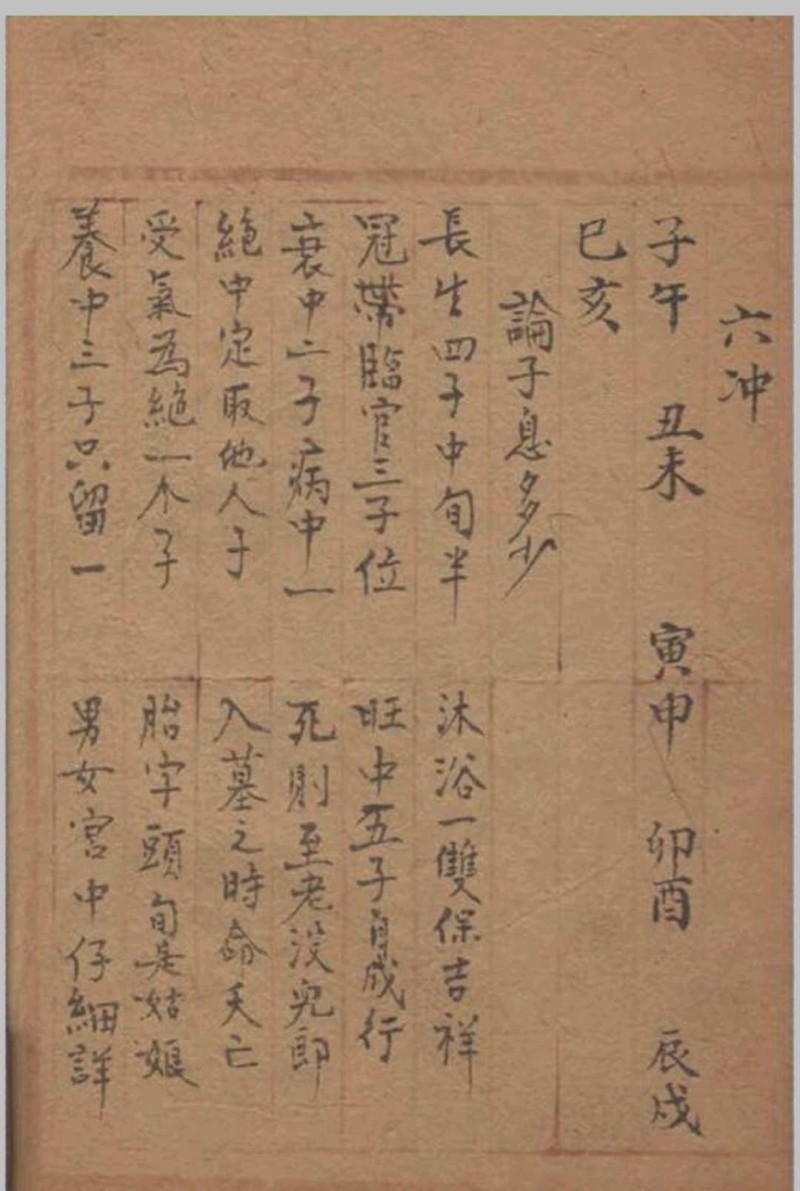 六冲
子午 丑未 寅申 卯酉 辰戌
巳亥
論子息多少
長生四子中旬半 沐浴一雙保吉祥
冠帶臨官三子位 旺中五子自成行
衰中二子病中一 死則至老没兒郎
絕中定取他人子 入墓之時命夭亡
受氣為絕一个子 胎字頭旬是姑娘
養中三子只留一 男女宮中仔細詳